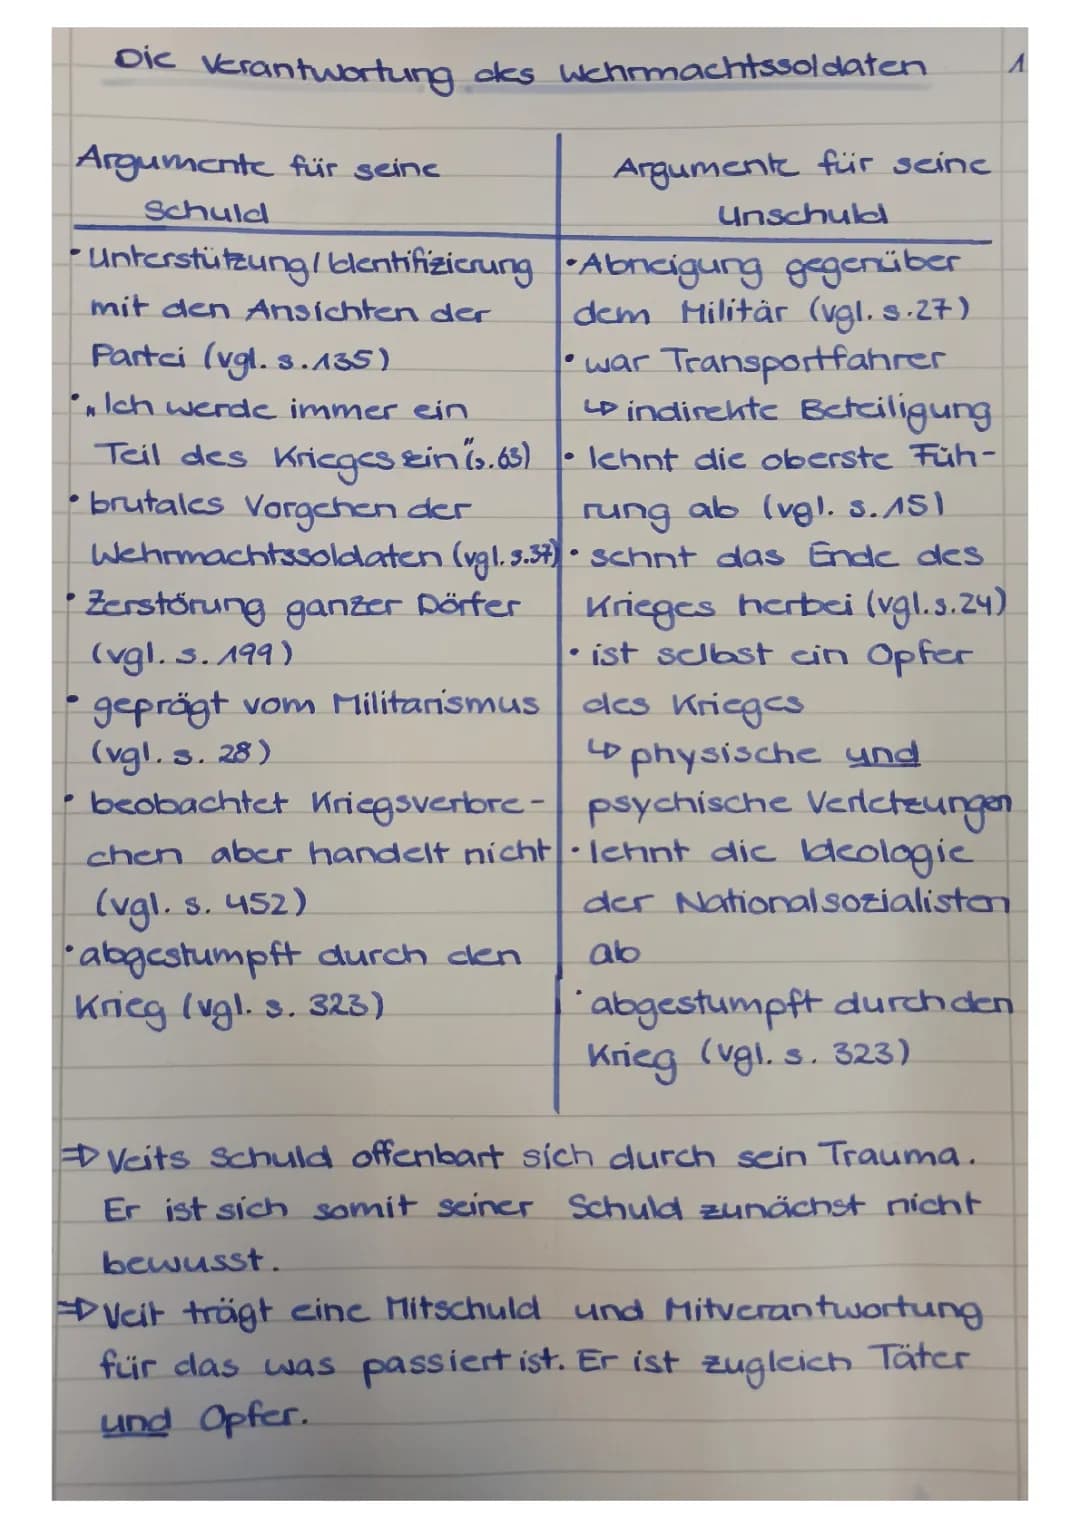 Die Verantwortung des Wehrmachtssoldaten
1
Argumente für seine
Schuld
• Unterstützung/Identifizierung
mit den Ansichten der
Partei (vgl. S. 135)
• „Ich werde immer ein
Teil des Krieges sein" (S. 63)
• brutales Vorgehen der
Wehrmachtssoldaten (vgl. S. 37)
• Zerstörung ganzer Dörfer
(vgl. S. 199)
• geprägt vom Militarismus
(vgl. S. 28)
• beobachtet Kriegsverbre-
chen aber handelt nicht
(vgl. S. 452)
• abgestumpft durch den
Krieg (vgl. S. 323)
Argumente für seine
Unschuld
• Abneigung gegenüber
dem Militär (vgl. S. 27)
• war Transportfahrer
↳ indirekte Beteiligung
• lehnt die oberste Füh-
rung ab (vgl. S. 15)
• sehnt das Ende des
Krieges herbei (vgl. S. 24)
• ist selbst ein Opfer
des Krieges
↳ physische und
psychische Verletzungen
• lehnt die Ideologie
der Nationalsozialisten
ab
• abgestumpft durch den
Krieg (vgl. S. 323)
⇒ Veits Schuld offenbart sich durch sein Trauma.
Er ist sich somit seiner Schuld zunächst nicht
bewusst.
⇒ Veit trägt eine Mitschuld und Mitverantwortung
für das was passiert ist. Er ist zugleich Täter
und Opfer.